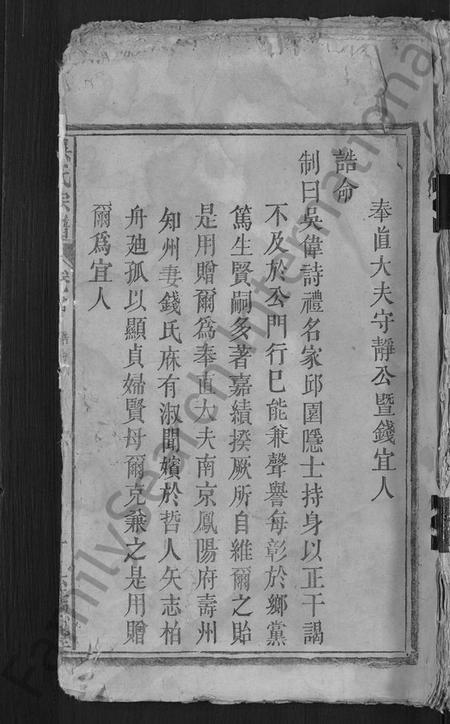 奉直大夫守靜公暨錢宜人
誥命
制曰吳偉詩禮名家邱園隱士持身以正干謁
不及於公門行巳能兼聲譽每彰於鄉黨
篤生賢嗣多著嘉績揆厥所自維爾之貽
是用贈爾爲奉直大夫南京鳳陽府壽州
知州妻錢氏庥有淑聞嬪於哲人矢志柏
舟廸孤以顯貞婦賢母爾克兼之是用贈
爾爲宜人
氏宗譜
FamilySearch International